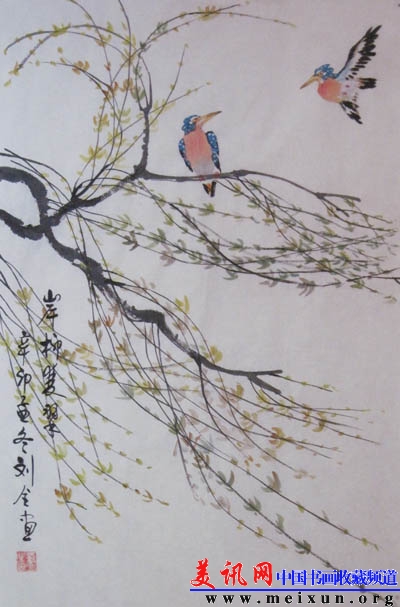 岸柳雙翠
辛卯孟冬刘画
美讯网 中国书画收藏频道
www.meixun.org